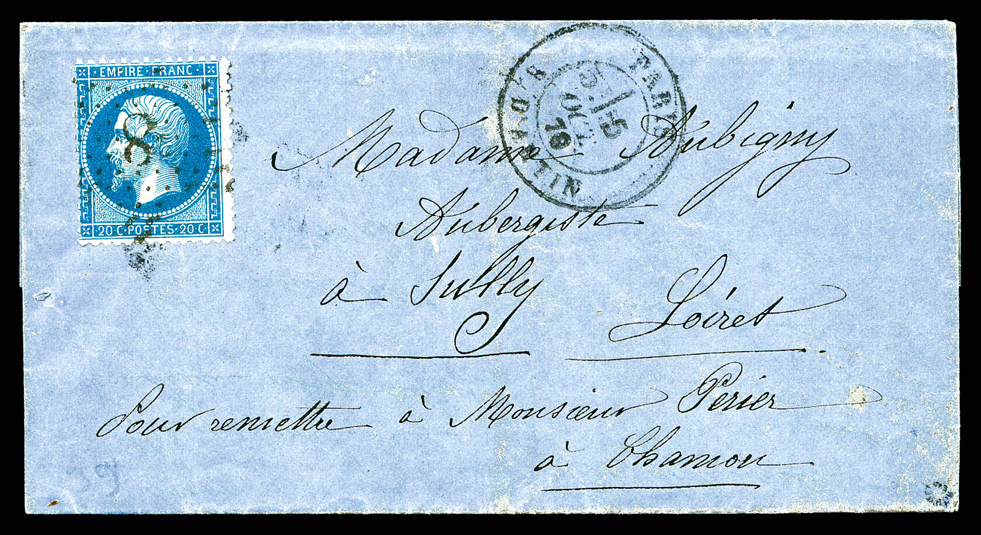 EMPIRE FRANC
20 C · POSTES · 20 C
PARIS
5
OCT.
70
Madame Aubigny
Aubergiste
à Sully Loiret
Pour remettre à Monsieur Perier
à Chamou